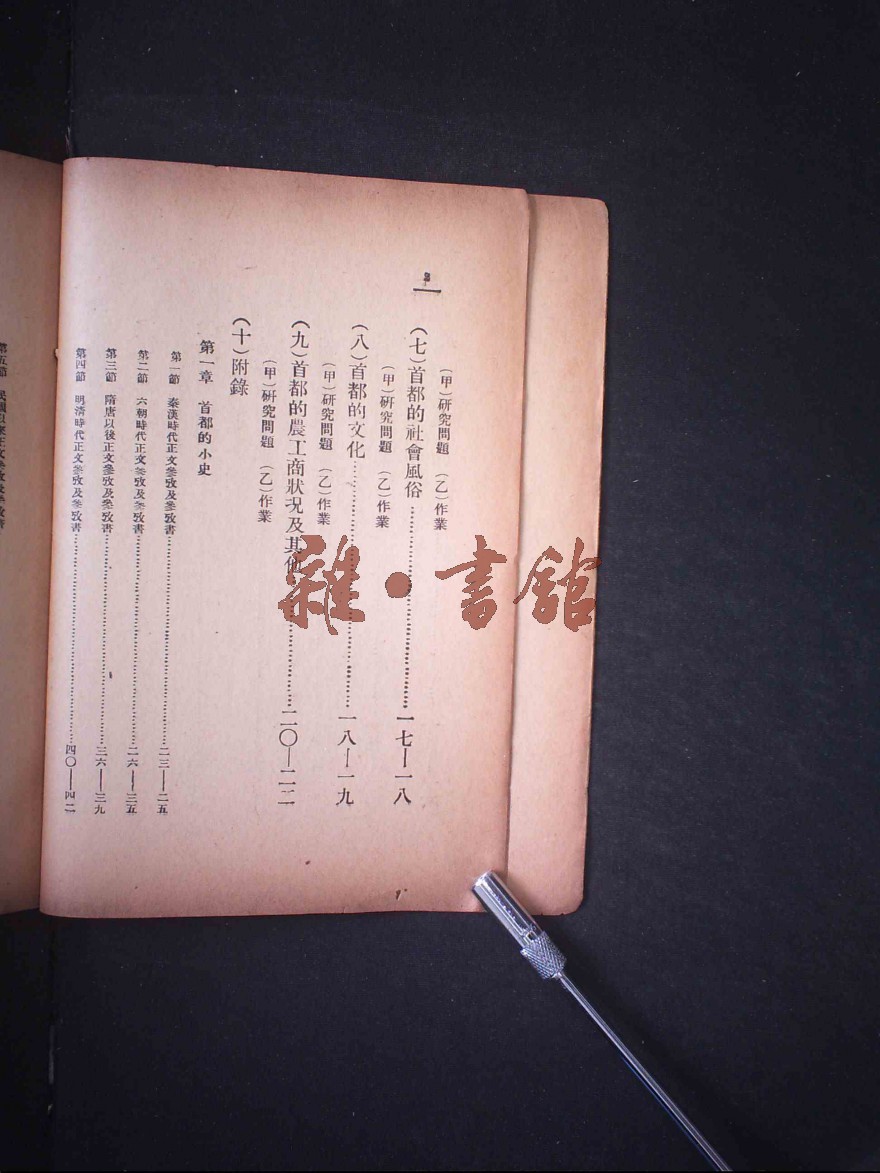 2
（甲）研究問題　（乙）作業
（七）首都的社會風俗……一七—一八
（甲）研究問題　（乙）作業
（八）首都的文化……一八—一九
（甲）研究問題　（乙）作業
（九）首都的農工商狀况及其他……二〇—二二
（甲）研究問題　（乙）作業
（十）附錄
第一章　首都的小史
第一節　秦漢時代正文參攷及參攷書……二三—二五
第二節　六朝時代正文參攷及參攷書……二六—三五
第三節　隋唐以後正文參攷及參攷書……三六—三九
第四節　明清時代正文參攷及參攷書……四〇—四二
第五節　民國以來正文參攷及參攷書
雜·書館